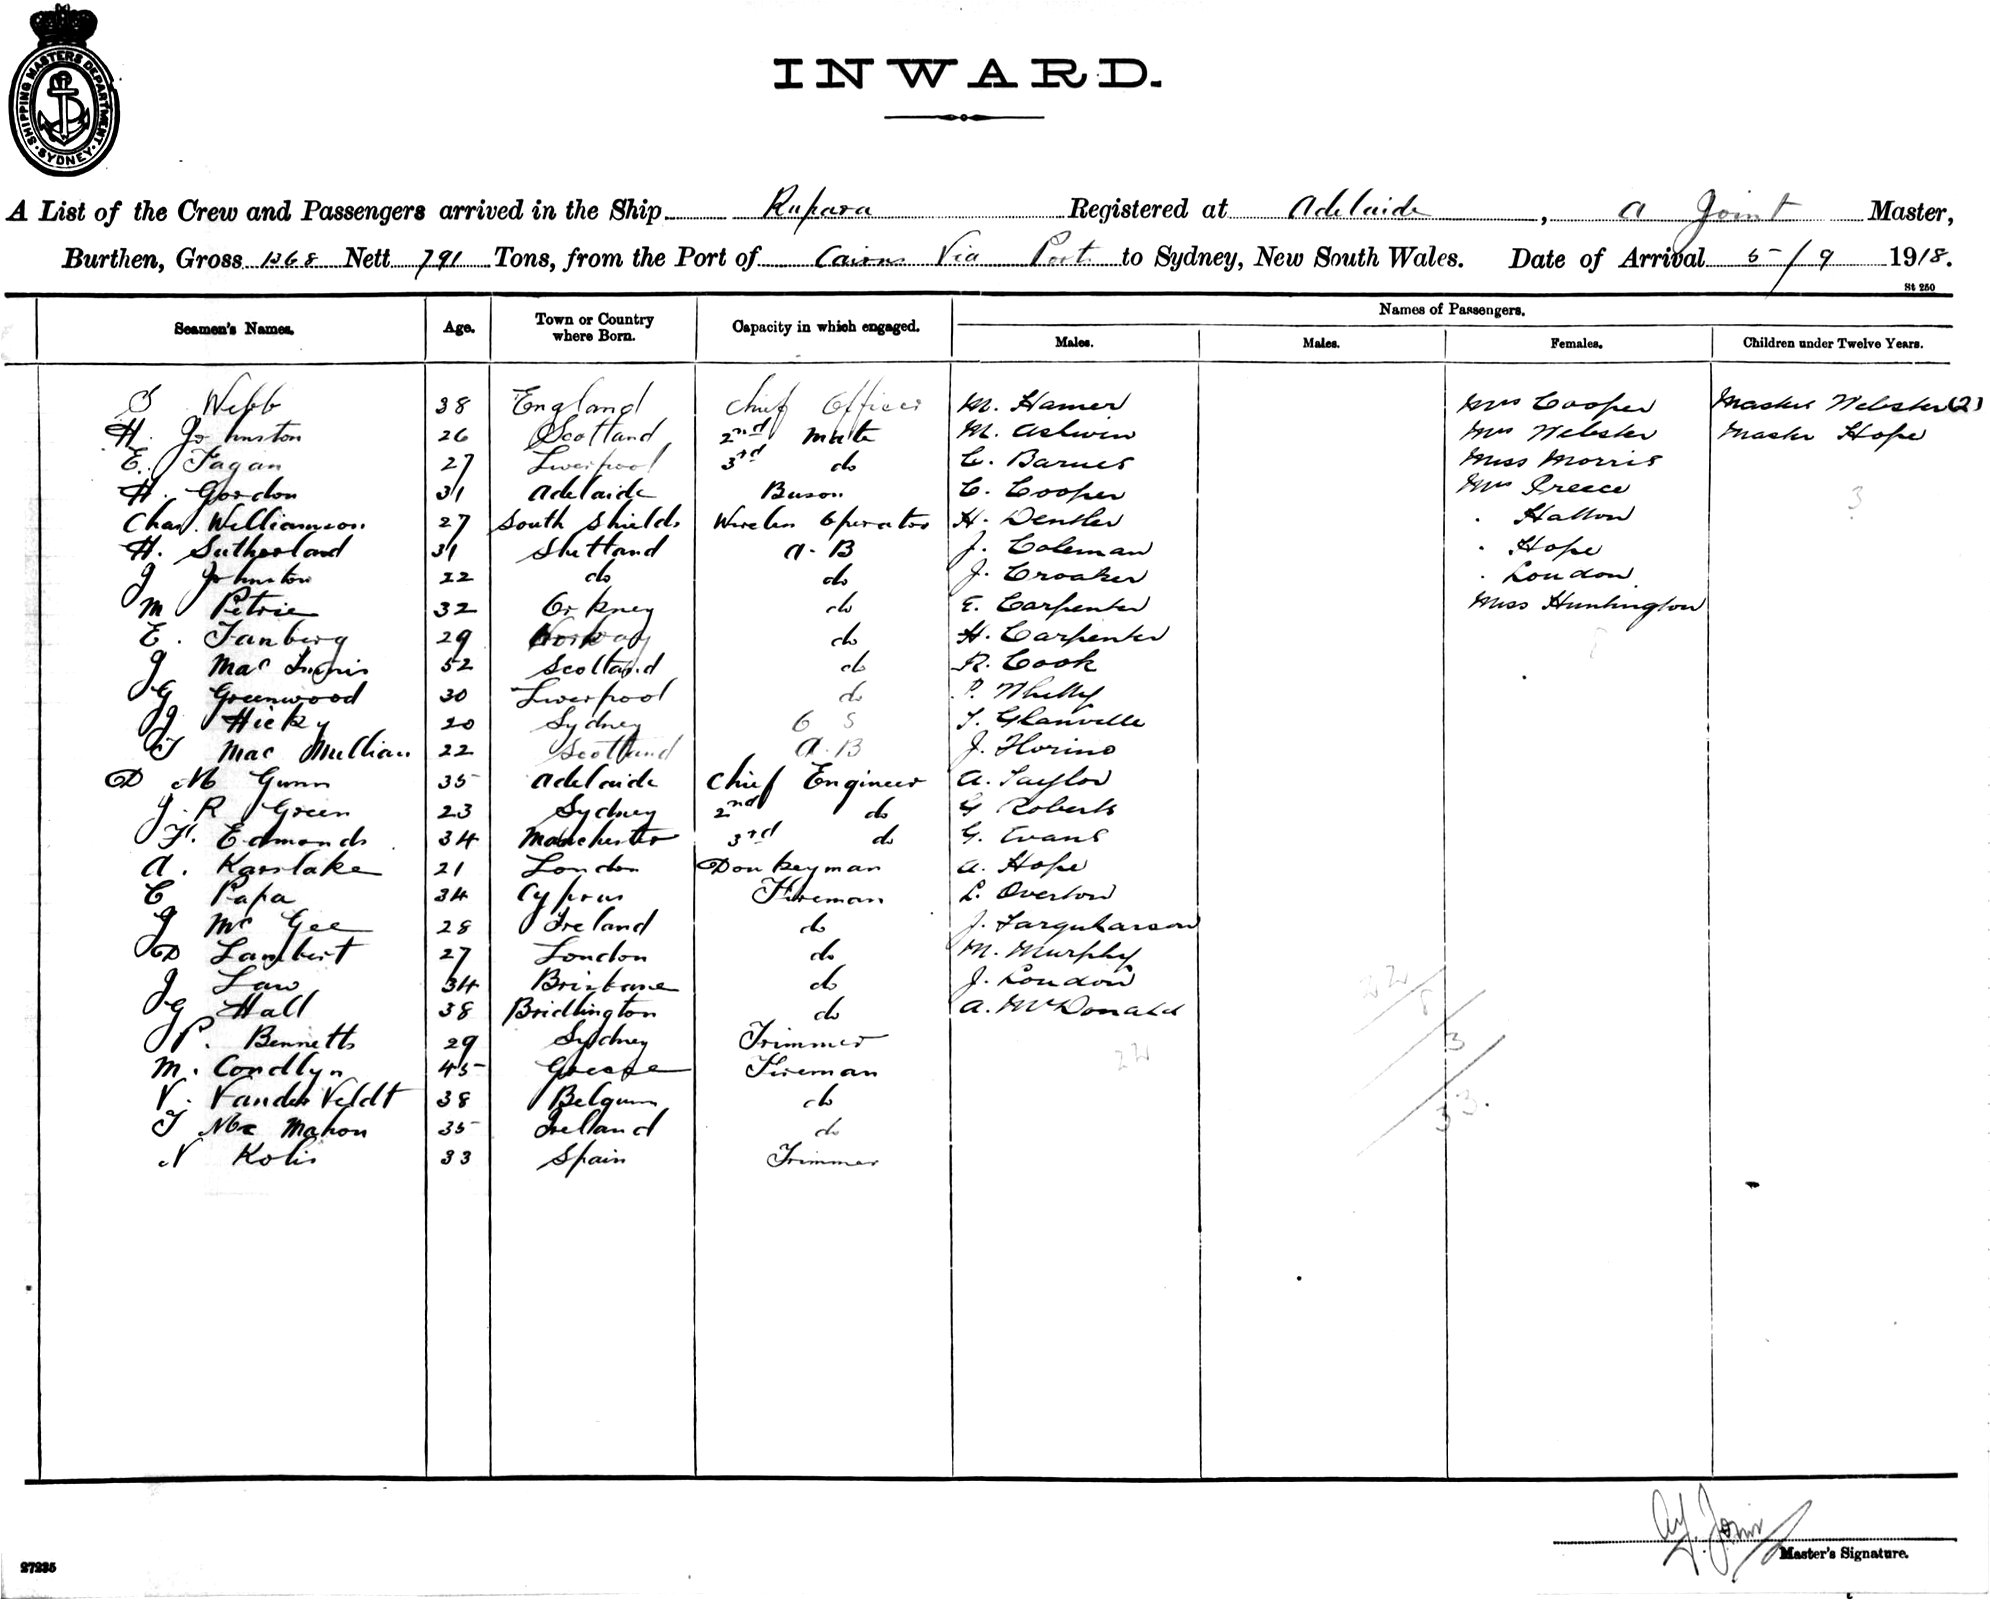 SHIPPING MASTERS DEPARTMENT
SYDNEY
INWARD.
A List of the Crew and Passengers arrived in the Ship Rupara Registered at Adelaide, A Joint Master,
Burthen, Gross 1268 Nett 791 Tons, from the Port of Cairns Via Ports to Sydney, New South Wales. Date of Arrival 5/9 1918.
St 250
Seamen's Names. Age. Town or Country where Born. Capacity in which engaged. Names of Passengers.
Males. Males. Females. Children under Twelve Years.
S Webb 38 England Chief Officer M. Hamer Mrs Cooper Master Webster (2)
H. Johnston 26 Scotland 2nd Mate M. Ashwin Mrs Webster Master Hope
E. Fagan 27 Liverpool 3rd do C. Barnes Miss Morris
H. Gordon 31 Adelaide Buson C. Cooper Mrs Preece 3
Chas. Williamson 27 South Shields Wireless Operator H. Denther . Hallow
H. Sutherland 31 Shetland A.B J. Coleman . Hope
J Johnston 22 do do J. Croaker . London
M Petrie 32 Orkney do E. Carpenter Miss Huntington
E. Fanberg 29 Norway do H. Carpenter
J Mac Innis 52 Scotland do R. Cook 8
G Greenwood 30 Liverpool do P. Whelly
J Hicky 20 Sydney O S T. Glanville
T Mac Mullian 22 Scotland A.B J. Florino
D M Gunn 35 Adelaide Chief Engineer A. Taylor
J. R Green 23 Sydney 2nd do G Roberts
F. Edmonds 34 Manchester 3rd do G. Evans
A. Karslake 21 London Donkeyman A. Hope
C Papa 34 Cyprus Fireman L. Overton
J Mc Gee 28 Ireland do J. Farquharson
D Lambert 27 London do M. Murphy
J Law 34 Brisbane do J. London 22
G Hall 38 Bridlington do A. McDonald 8
P. Bennetts 29 Sydney Trimmer 22 3
M. Condlyn 45 Greece Fireman
V. Vander Veldt 38 Belgum do 33.
T Mc Mahon 35 Ireland do
N Kolis 33 Spain Trimmer
A.J. Joint
Master's Signature.
27235